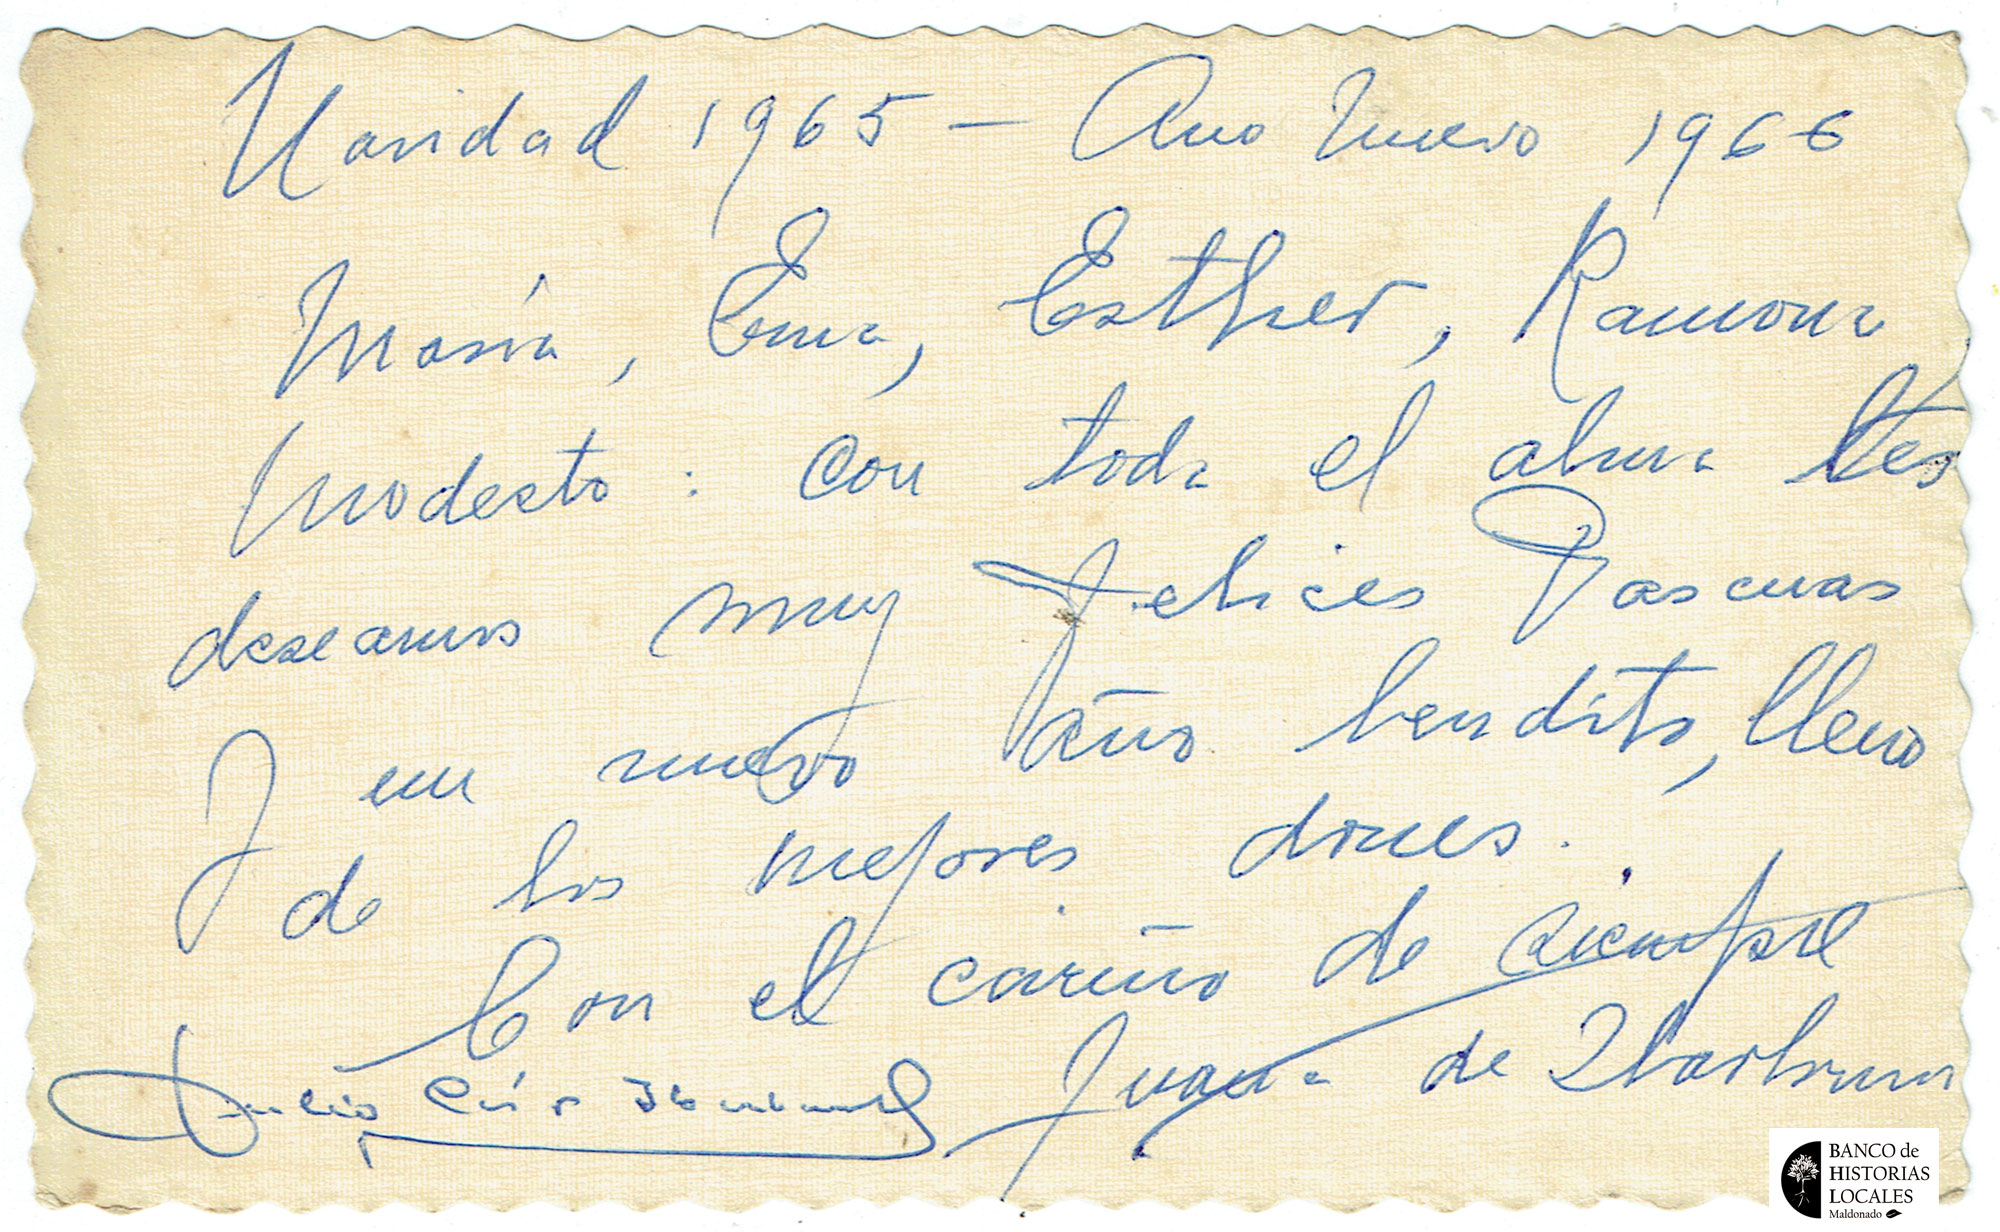 Navidad 1965 — Ano Nuevo 1966
María, Ema, Esther, Ramona
Modesto: con toda el alma les
deseamos muy felices Pascuas
y un nuevo año bendito, lleno
de los mejores dones.
Con el cariño de siempre
Julio Juana de
BANCO de
HISTORIAS
LOCALES
Maldonado